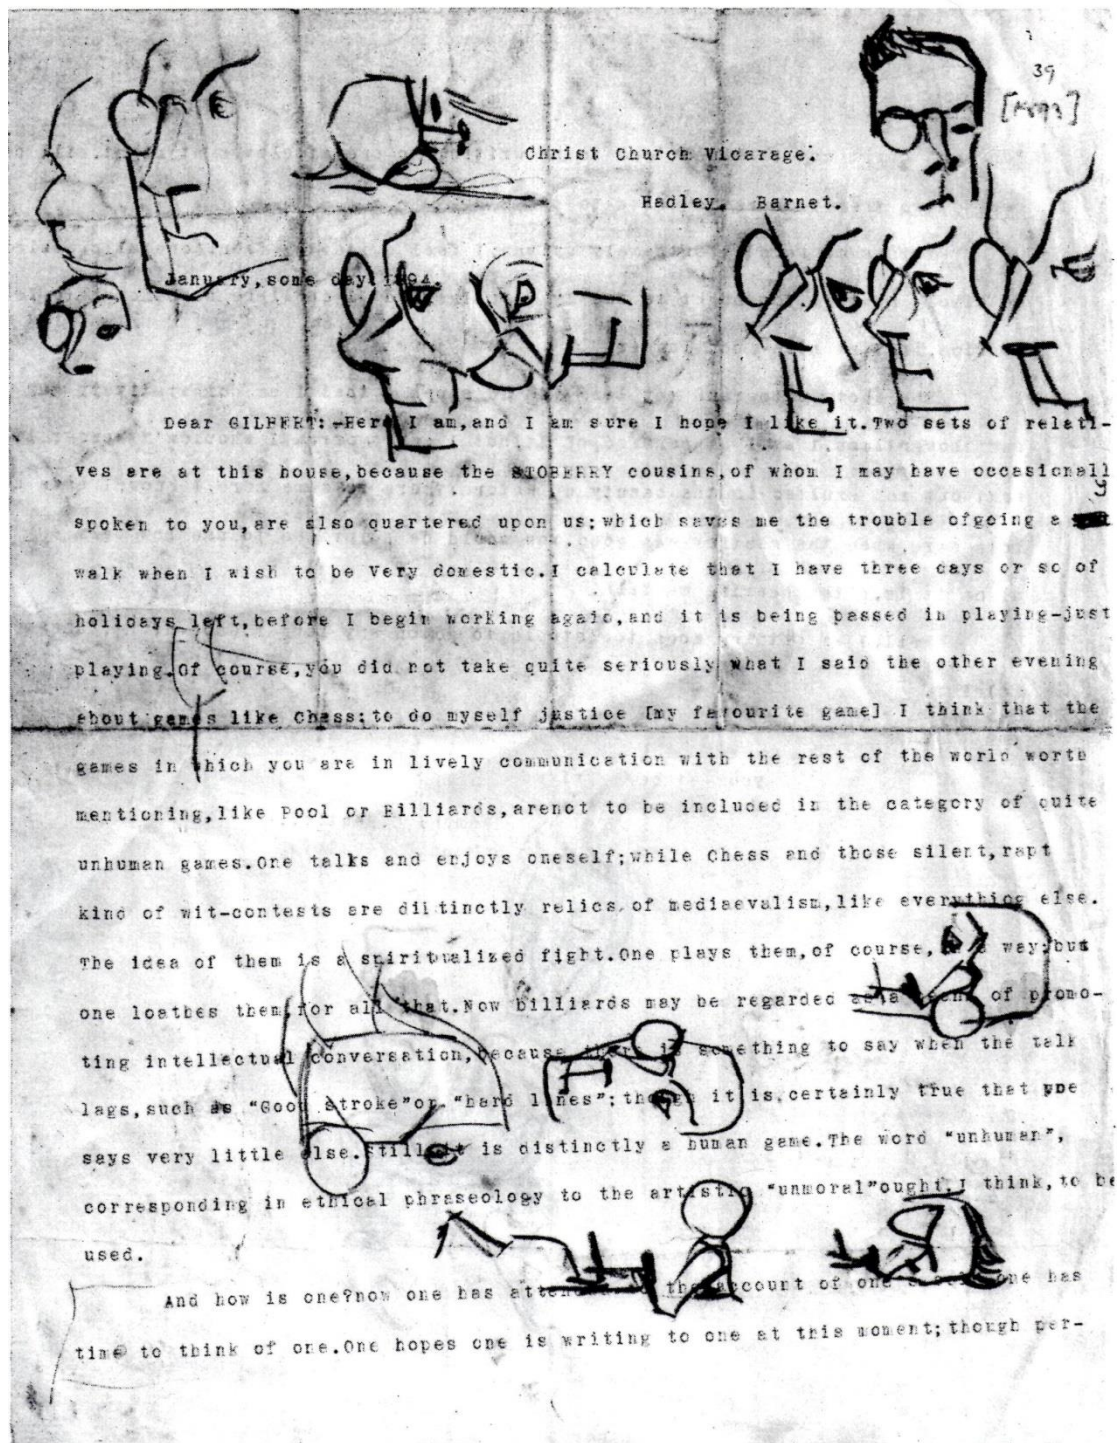 39
Christ Church Vicarage.
Hadley. Barnet.
January, some day. 1894
Dear GILBERT:-Here I am,and I am sure I hope I like it.Two sets of relati-
ves are at this house,because the STOBERRY cousins,of whom I may have occasionall
y
spoken to you,are also quartered upon us;which saves me the trouble ofgoing a
walk when I wish to be very domestic.I calculate that I have three days or so of
holidays left,before I begin working again,and it is being passed in playing-just
playing.Of course,you did not take quite seriously what I said the other evening
about games like Chess;to do myself justice [my favourite game] I think that the
games in which you are in lively communication with the rest of the world worth
mentioning,like Pool or Billiards,arenot to be included in the category of quite
unhuman games.One talks and enjoys oneself;while Chess and those silent,rapt
kind of wit-contests are diitinctly relics of mediaevalism,like everything else.
The idea of them is a spiritualized fight.One plays them,of course, way;but
one loathes them for all that.Now billiards may be regarded as a of promo-
ting intellectual conversation,because there is something to say when the talk
lags,such as "Good stroke"or "hard lines";though it is certainly true that one
says very little else.Still it is distinctly a human game.The word "unhuman",
corresponding in ethical phraseology to the artistic "unmoral"ought,I think,to be
used.
And how is one?now one has the account of one has
time to think of one.One hopes one is writing to one at this moment;though per-